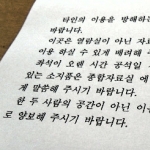 타인의 이용을 방해하는
바랍니다.
이곳은 열람실이 아닌 자료
이용 하실 수 있게 배려해
좌석이 오랜 시간 공석일
있는 소지품은 종합자료실 에
게 말씀해 주시기 바랍니다.
한 두 사람의 공간이 아닌 이
로 양보해 주시기 바랍니다.